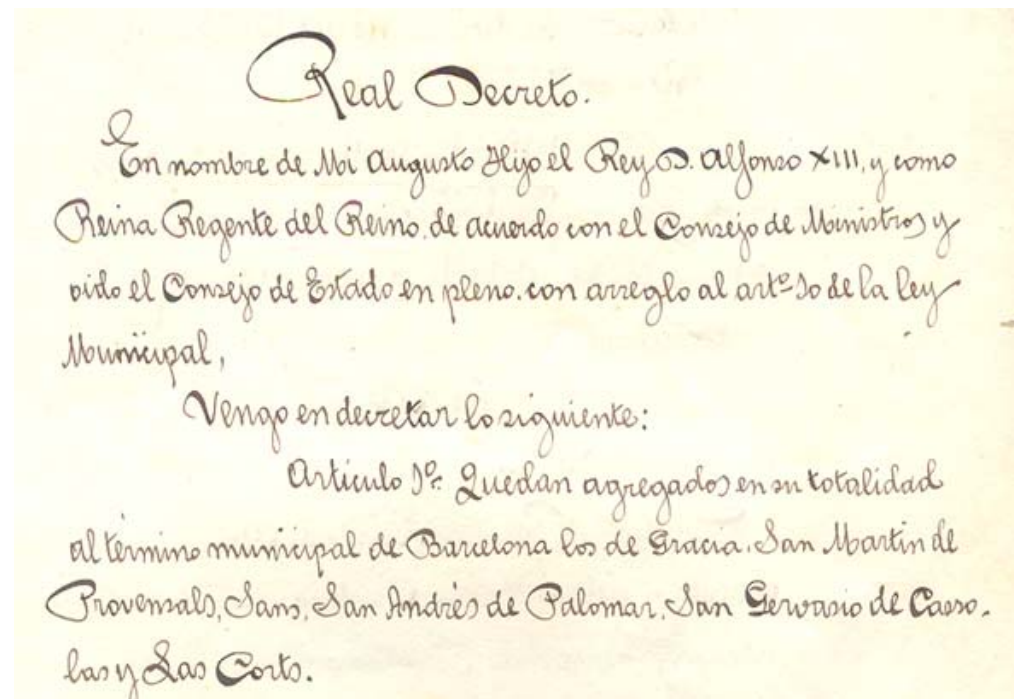 Real Decreto.
En nombre de Mi Augusto Hijo el Rey D. Alfonso XIII, y como
Reina Regente del Reino, de acuerdo con el Consejo de Ministros y
oido el Consejo de Estado en pleno, con arreglo al artº 10 de la ley
Municipal,
Vengo en decretar lo siguiente:
Artículo 1º. Quedan agregados en su totalidad
al término municipal de Barcelona los de Gracia, San Martin de
Provensals, Sans, San Andrés de Palomar, San Gervasio de Casso-
las y Las Corts.